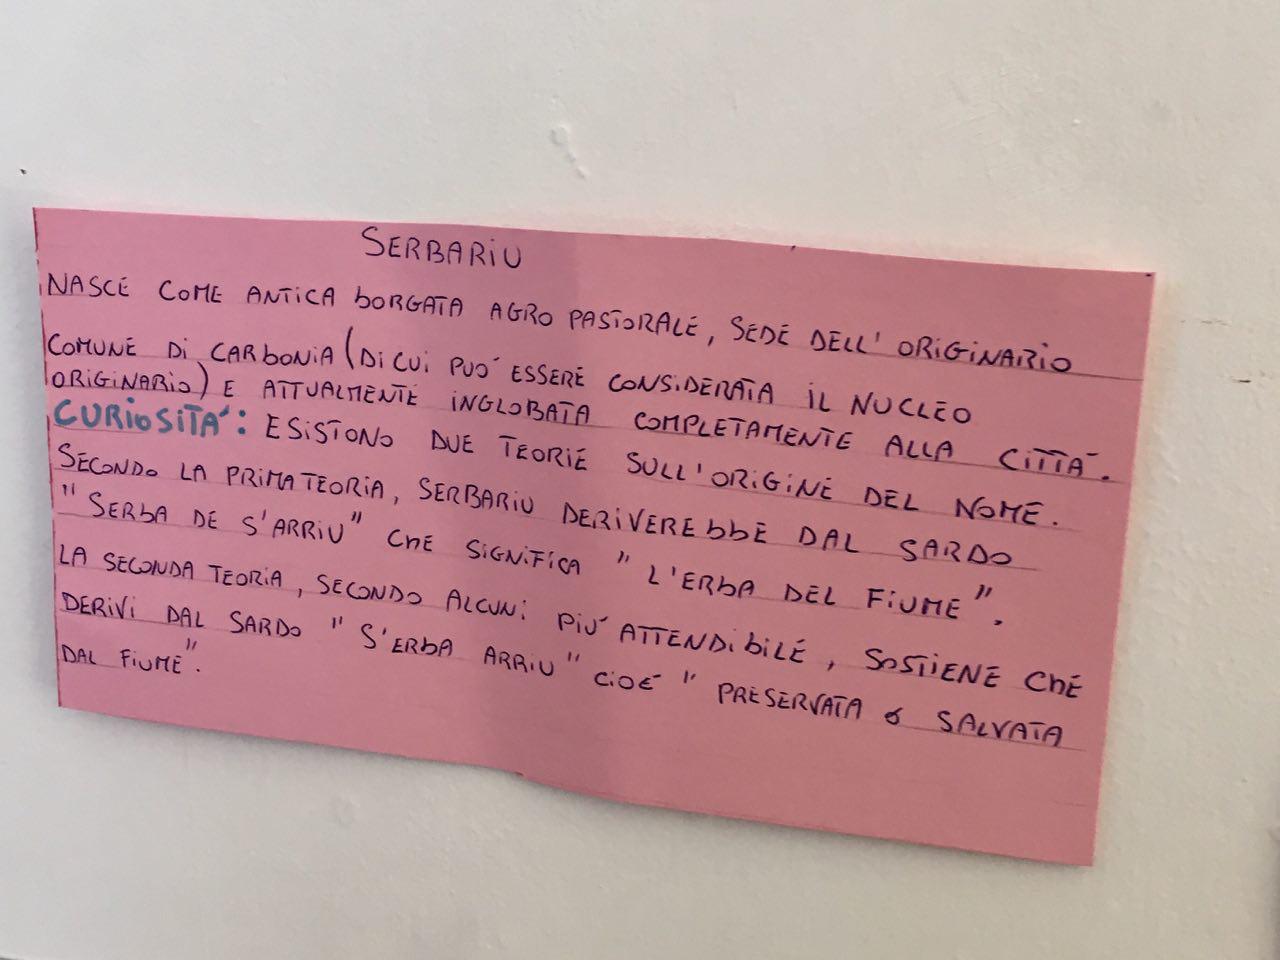 SERBARIU
NASCE COME ANTICA BORGATA AGRO PASTORALE, SEDE DELL'ORIGINARIO
COMUNE DI CARBONIA (DI CUI PUO' ESSERE CONSIDERATA IL NUCLEO
ORIGINARIO) E ATTUALMENTE INGLOBATA COMPLETAMENTE ALLA CITTA'.
CURIOSITA': ESISTONO DUE TEORIE SULL'ORIGINE DEL NOME.
SECONDO LA PRIMA TEORIA, SERBARIU DERIVEREBBE DAL SARDO
"SERBA DE S'ARRIU" CHE SIGNIFICA "L'ERBA DEL FIUME".
LA SECONDA TEORIA, SECONDO ALCUNI PIU' ATTENDIBILE, SOSTIENE CHE
DERIVI DAL SARDO "S'ERBA ARRIU" CIOE' "PRESERVATA O SALVATA
DAL FIUME".